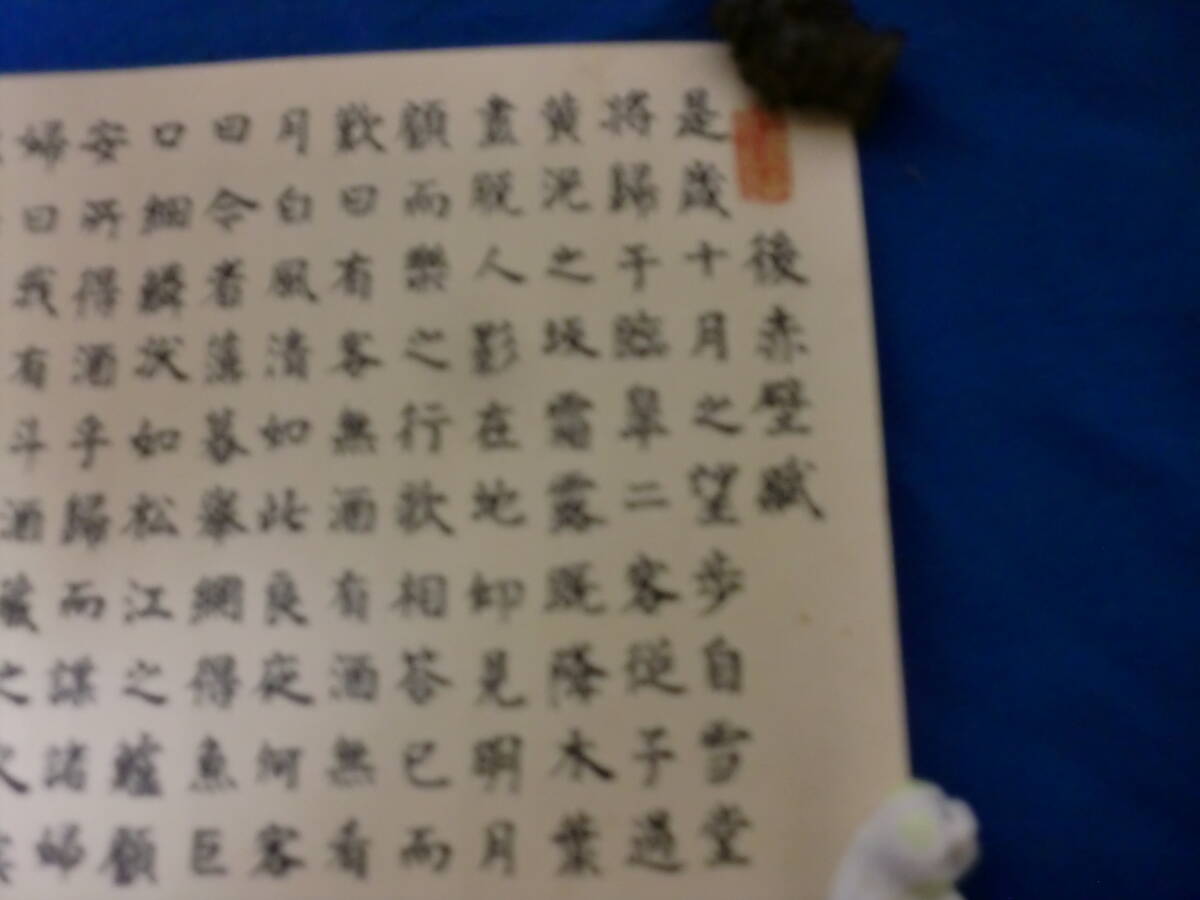 後赤壁賦
是歲十月之望步自雪堂
將歸于臨皋二客從予過
黃泥之坂霜露既降木葉
盡脫人影在地仰見明月
顧而樂之行歌相答已而
歎曰有客無酒有酒無肴
月白風清如此良夜何客
曰今者薄暮舉網得魚巨
口細鱗狀如松江之鱸顧
安所得酒乎歸而謀諸婦
婦曰我有斗酒藏之久矣